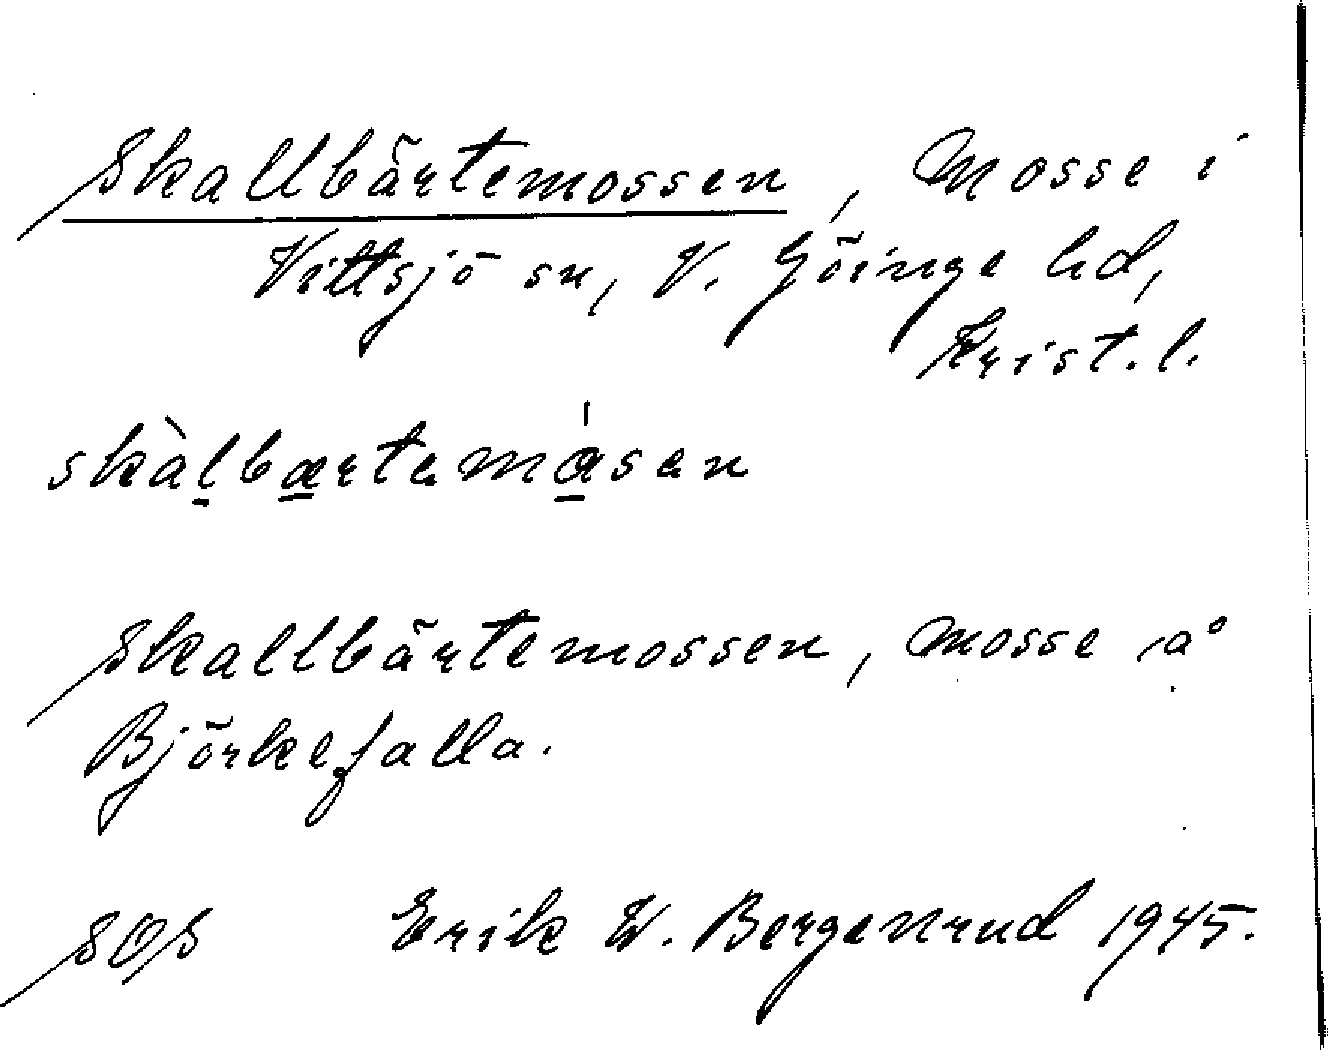 Skallbärtemossen, Mosse i
Vittsjö sn, V. Göinge hd,
Krist. l.
skàl̠bæ̠rtamǻ̠sen
Skallbärtemossen, mosse å
Björkefalla.
SOS Erik W. Bergenrud 1945.